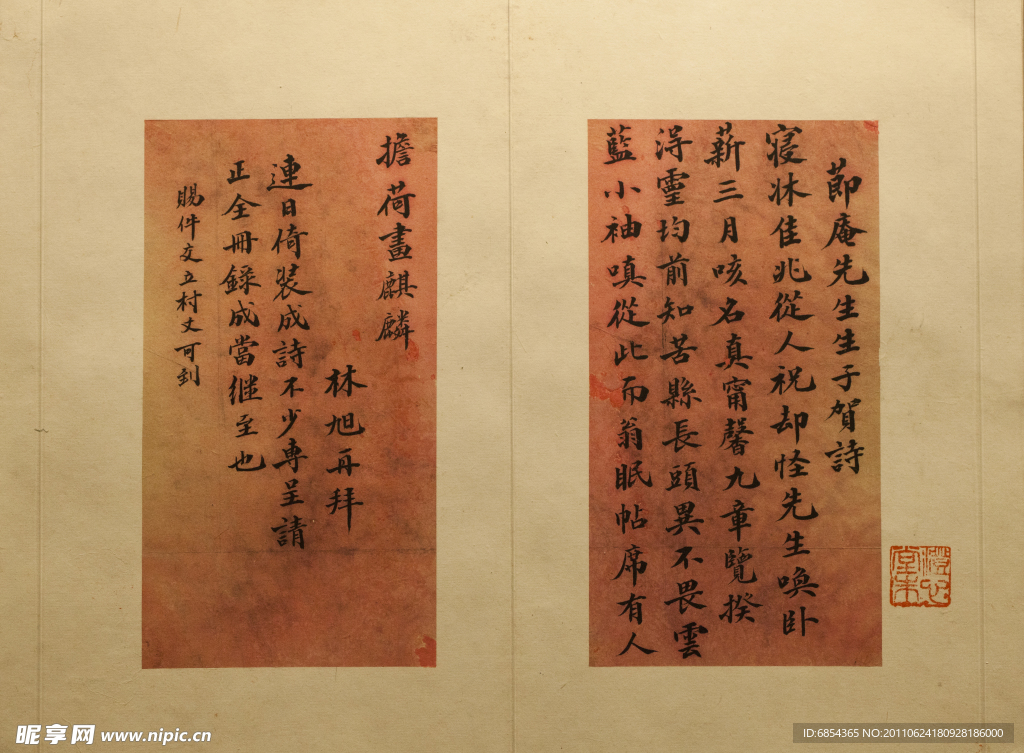 節庵先生生子賀詩
寢牀佳兆從人祝却怪先生喚卧
薪三月咳名真甯馨九章覽揆
淂靈均前知苦縣長頭異不畏雲
藍小袖嗔從此而翁眠帖席有人
擔荷畫麒麟
林旭再拜
連日倚装成詩不少専呈請
正全冊録成當继至也
賜件交立村丈可到
昵享网 www.nipic.cn
ID:6854365 NO:20110624180928186000